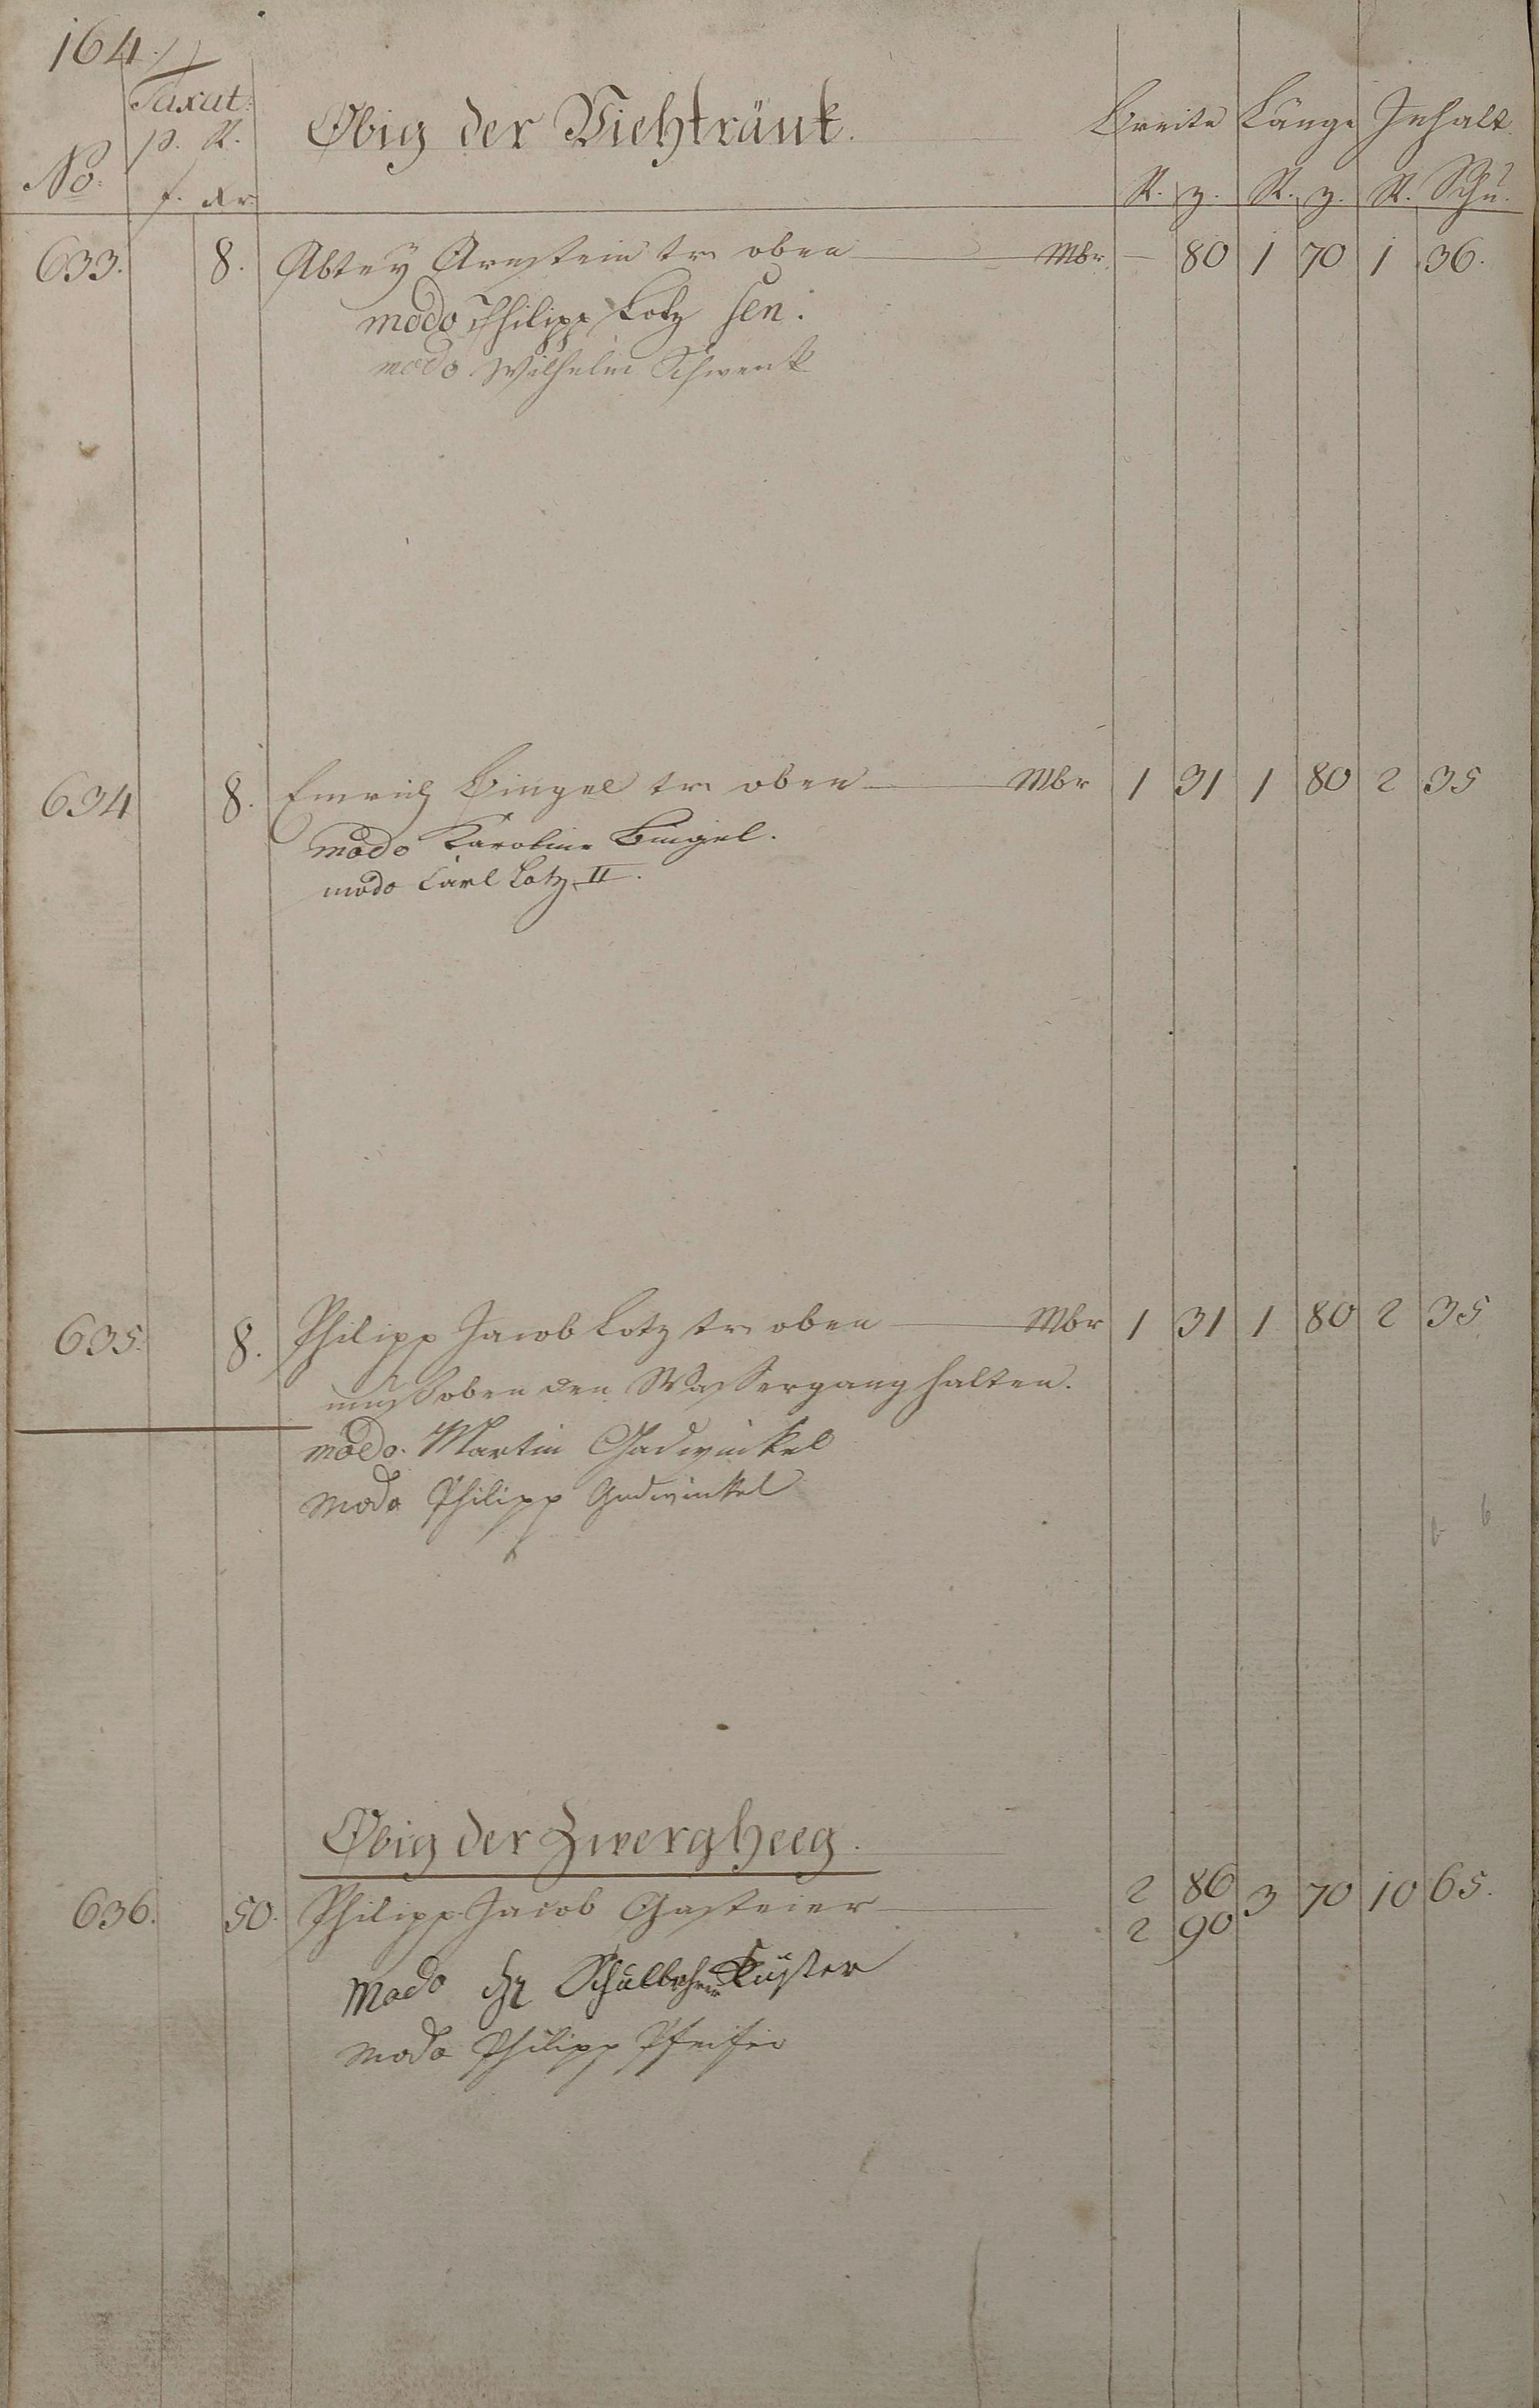 164.
Taxat: Obig der Viehtränk. Breite Länge Inhalt
No. p. R.
f. Xr. R. z. R. z. R. Schu.
633. 8. Abtey Arnstein tr. oben Mbr — 80 1 70 1 36.
modo Philipp Lotz sen.
modo Wilhelm Schwenk
634 8. Emrich Bingel tr. oben Mbr 1 31 1 80 2 35
modo Karoline Bingel.
modo Carl Lotz II.
635. 8. Philipp Jacob Lotz tr. oben Mbr 1 31 1 80 2 35
muß oben den Wassergang halten.
modo Martin Gadwinkel
modo Philipp Gadwinkel
Obig der Zwergheeg.
636. 50. Philipp Jacob Gasteier 2 86 3 70 10 65.
2 90
modo Hr Schullehrer Küster
modo Philipp Pfeifer